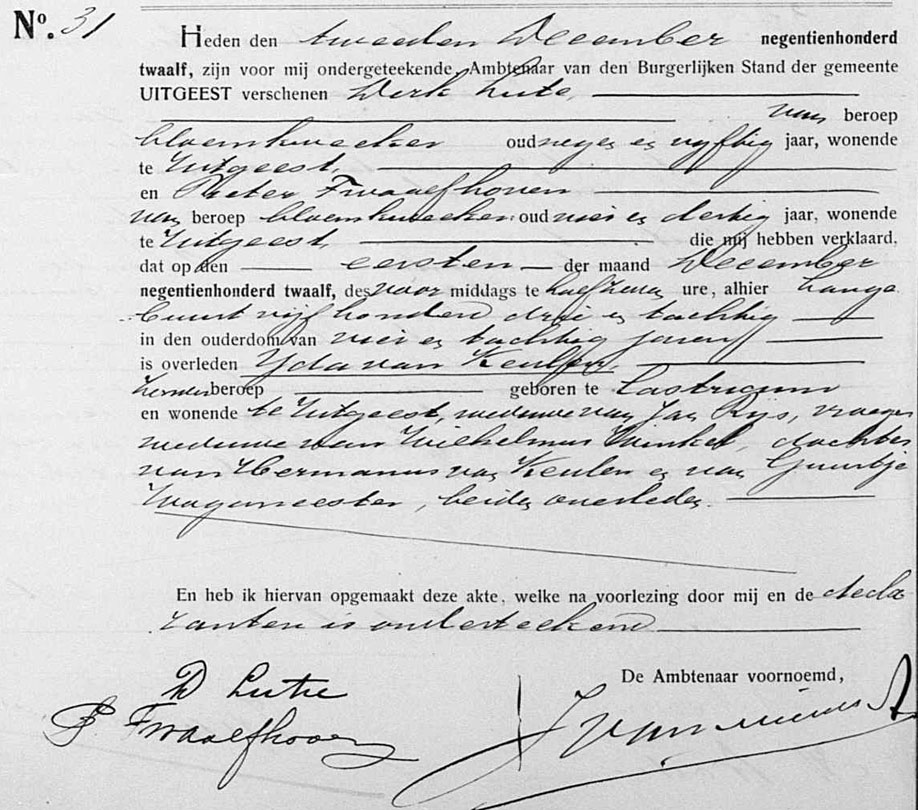 No. 31
Heden den tweeden December negentienhonderd
twaalf, zijn voor mij ondergeteekende, Ambtenaar van den Burgerlijken Stand der gemeente
UITGEEST verschenen Derk Lute,
van beroep
bloemkweeker oud negen en vijftig jaar, wonende
te Uitgeest,
en Pieter Twaalfhoven
van beroep bloemkweeker oud vier en dertig jaar, wonende
te Uitgeest, die mij hebben verklaard,
dat op den eersten der maand December
negentienhonderd twaalf, des voor middags te half zeven ure, alhier Lange
buurt vijf honderd drie en tachtig
in den ouderdom van vier en tachtig jaren
is overleden Yda van Keulen
zonder beroep geboren te Castricum
en wonende te Uitgeest, weduwe van Jan Rijs, vroeger
weduwe van Wilhelmus Winkel, dochter
van Hermanus van Keulen en van Guurtje
Wagemeester, beiden overleden.
En heb ik hiervan opgemaakt deze akte, welke na voorlezing door mij en de decla
ranten is onderteekend
De Ambtenaar voornoemd,
D Lute
P. Twaalfhoven